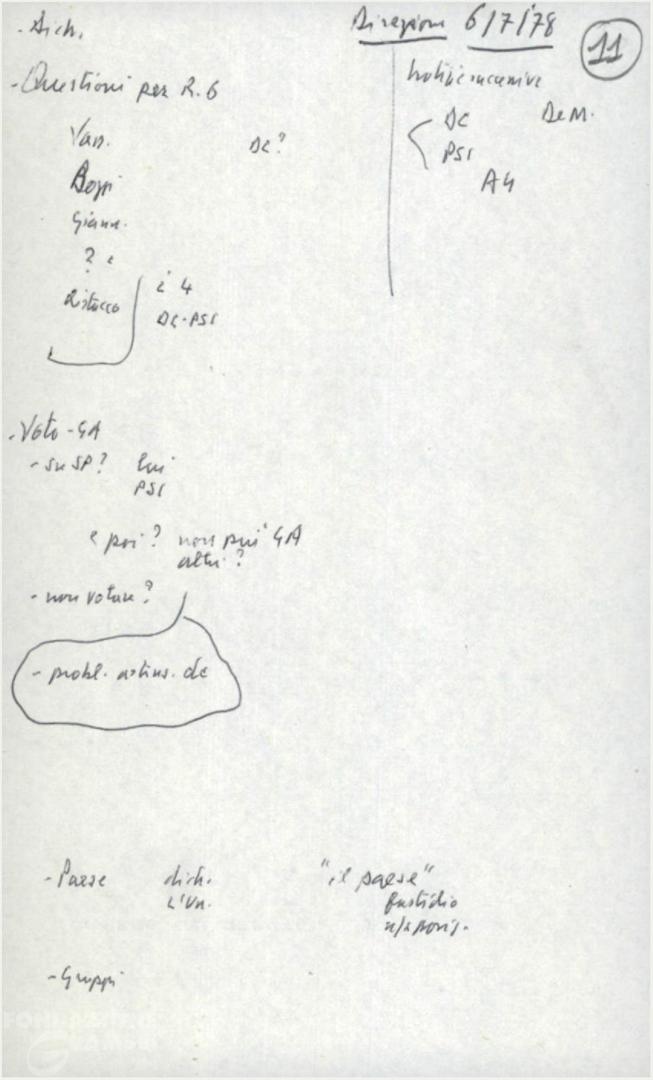 - Dich.
Direzione 6/7/78
11
- Questioni per R. 6
Notizie successive
Van. DC?
DC De M.
PSI
A4
Bozzi
Giann.
? e
distacco
i 4
DC-PSI
- Voto - GA
- su SP? lui
PSI
e poi? non più GA
altri?
- non votare?
- probl. astens. dc
- Paese dich. "il paese"
L'Un. fastidio
- Gruppi